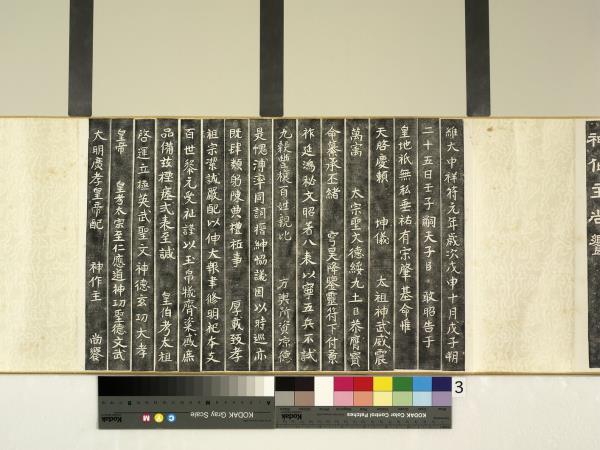 神作主尚饗
維大中祥符元年歲次戊申十月戊子朔
二十五日壬子嗣天子臣 敢昭告于
皇地祇無私垂祐有宋肇基命惟
天啓慶賴 坤儀 太祖神武威震
萬寓 太宗聖文德綏九土臣恭膺寶
命纂承丕緒 穹昊降鑒靈符下付景
祚延鴻秘文昭著八表以寧五兵不試
九穀豐穰百姓親比 方輿所資涼德
是愧溥率同詞搢紳協議因以時巡亦
既肆類躬陳典禮祗事 厚載致孝
祖宗潔誠嚴配以伸大報聿修明祀本支
百世黎元受祉謹以玉帛犧齊粢盛庶
品備茲禋瘞式表至誠 皇伯考太祖
啓運立極英武聖文神德玄功大孝
皇帝 皇考太宗至仁應道神功聖德文武
大明廣孝皇帝配 神作主 尚饗
KODAK Gray Scale
C Y M
Kodak
KODAK Color Control Patches
3